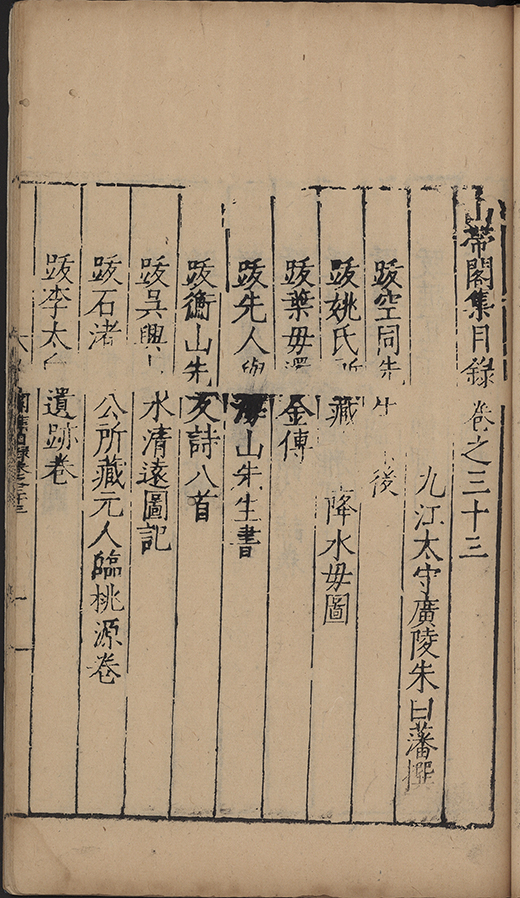 山帶閣集目錄 卷之三十三
九江太守廣陵朱曰藩撰
跋空同先生 後
跋姚氏所藏 降水毋圖
跋葉毋還金傳
跋先人與 山朱生書
跋衡山先 友詩八首
跋吳興山水清遠圖記
跋石渚 公所藏元人臨桃源卷
跋李太白 遺跡卷